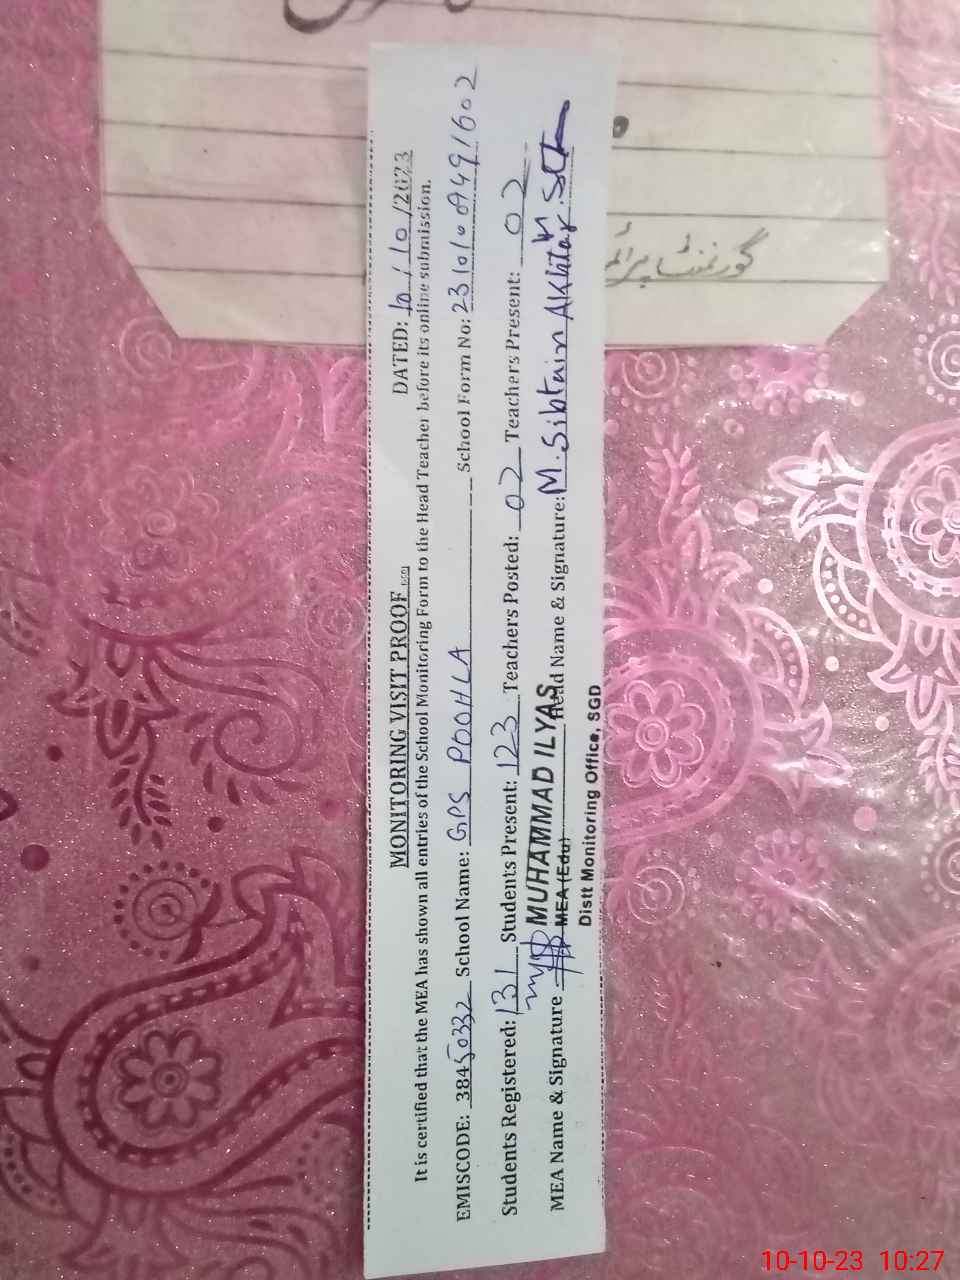 MONITORING VISIT PROOF
DATED: 10/10/2023
It is certified that the MEA has shown all entries of the School Monitoring Form to the Head Teacher before its online submission.
EMISCODE: 38450332 School Name: GPS POOHLA School Form No: 2310109491602
Students Registered: 131 Students Present: 123 Teachers Posted: 02 Teachers Present: 02
MEA Name & Signature Head Name & Signature: M. Sibtain Akhtar
MUHAMMAD ILYAS
MEA (Edu)
Distt Monitoring Office, SGD
گورنمنٹ پرائمر
10-10-23 10:27